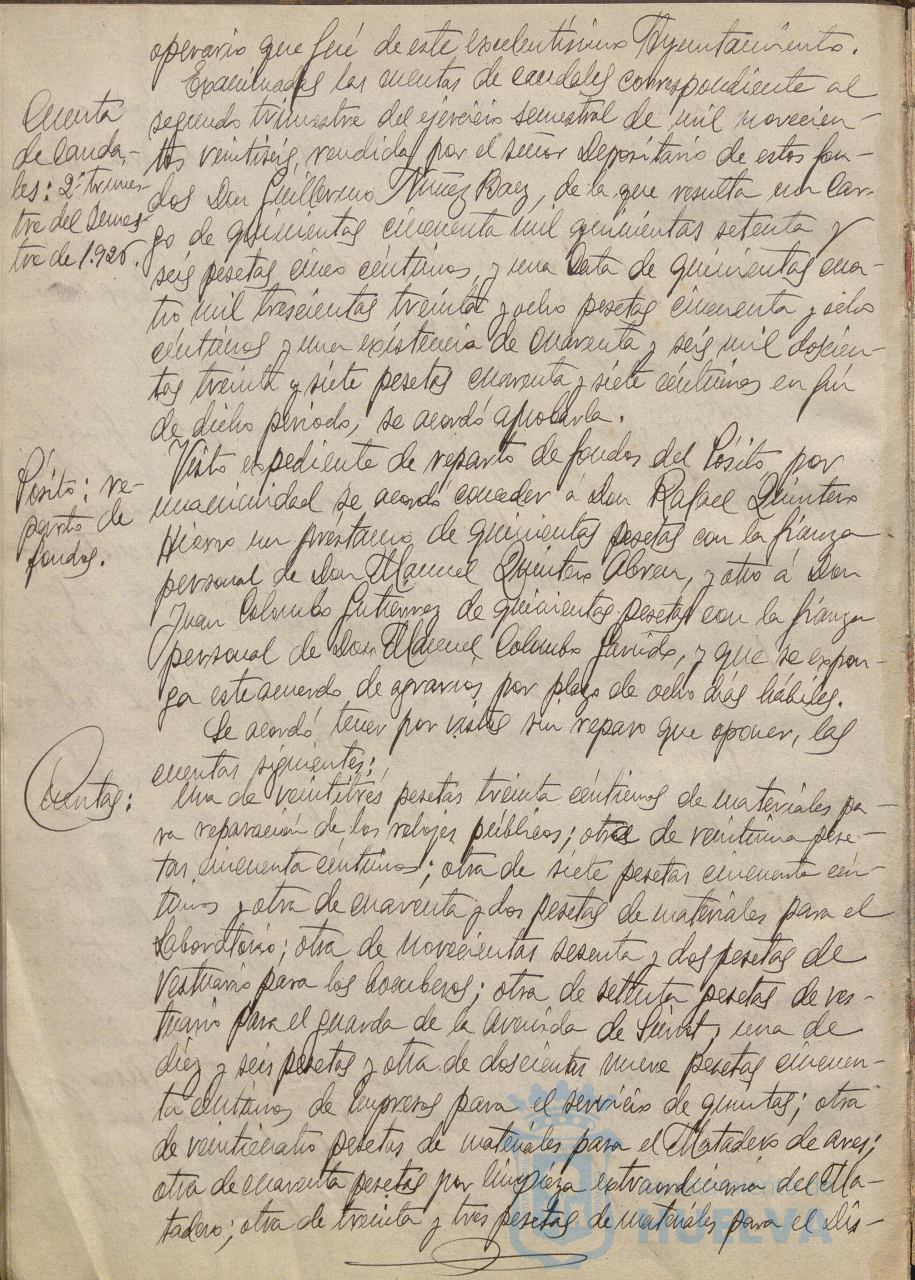 operario que fué de este excelentísimo Ayuntamiento.
Examinadas las cuentas de caudales correspondiente al
Cuenta
de Cauda-
les: 2º trimes-
tre del Semes-
tre de 1.926.
segundo trimestre del ejercicio semestral de mil novecien-
tos veintiseis, rendidas por el señor Depositario de estos fon-
dos Don Guillermo Núñez Baez, de la que resulta un Car-
go de quinientas cincuenta mil quinientas setenta y
seis pesetas cinco céntimos, y una Data de quinientas cua-
tro mil trescientas treinta y ocho pesetas cincuenta y ocho
céntimos y una existencia de cuarenta y seis mil doscien-
tas treinta y siete pesetas cuarenta y siete céntimos en fin
de dicho periodo, se acordó aprobarla.
Pósito: re-
parto de
fondos.
Visto expediente de reparto de fondos del Pósito por
unanimidad se acordó conceder á Don Rafael Quintero
Hierro un préstamo de quinientas pesetas con la fianza
personal de Don Manuel Quintero Abreu, y otro á Don
Juan Colombo Gutierrez de quinientas pesetas con la fianza
personal de Don Manuel Colombo Garrido, y que se expon-
ga este acuerdo de agravios por plazo de ocho días hábiles.
Se acordó tener por vistas sin reparo que oponer, las
cuentas siguientes:
Cuentas:
Una de veintitres pesetas treinta céntimos de materiales pa-
ra reparación de los relojes públicos; otra de veintiuna pese-
tas cincuenta céntimos; otra de siete pesetas cincuenta cén-
timos y otra de cuarenta y dos pesetas de materiales para el
Laboratorio; otra de novecientas sesenta y dos pesetas de
vestuario para los bomberos; otra de setenta pesetas de ves-
tuario para el guarda de la avenida de y una de
diez y seis pesetas y otra de doscientas nueve pesetas cincuen-
ta céntimos de impresos para el servicio de quintas; otra
de veinticuatro pesetas de materiales para el Matadero de aves;
otra de cuarenta pesetas por limpieza extraordinaria del Ma-
tadero; otra de treinta y tres pesetas de materiales para el Dis-
HUELVA